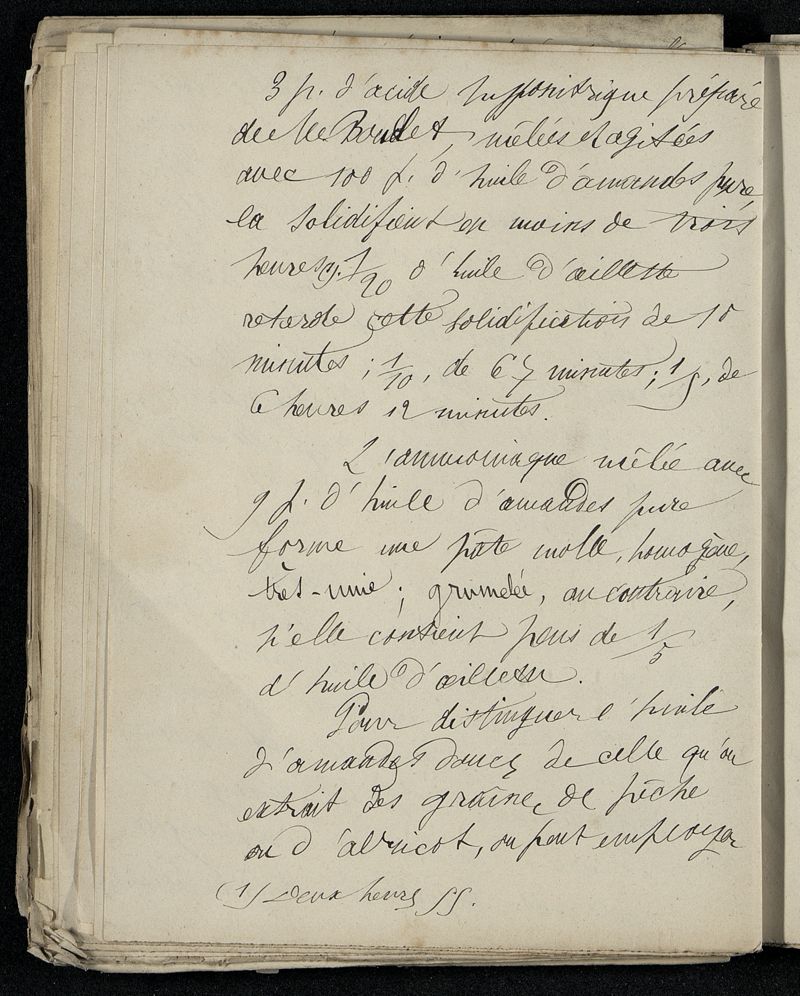 3 p. d'acide hypponitrique préparé
de Mr Boudet, mêlées et agitées
avec 100 p. d'huile d'amandes pure
la solidifient en moins de trois
heures (1). 1/20 d'huile d'œillette
retarde cette solidification de 10
minutes ; 1/10, de 67 minutes ; 1/5, de
6 heures 12 minutes.
L'ammoniaque mêlée avec
9 p. d'huile d'amandes pure
forme une pâte molle, homogène,
très-unie ; grumelée, au contraire,
s'elle contient plus de 1/5
d'huile d'œillette.
Pour distinguer l'huile
d'amandes douces de celle qu'on
extrait des graines de pêche
ou d'abricot, on peut employer
(1) Deux heures 55.